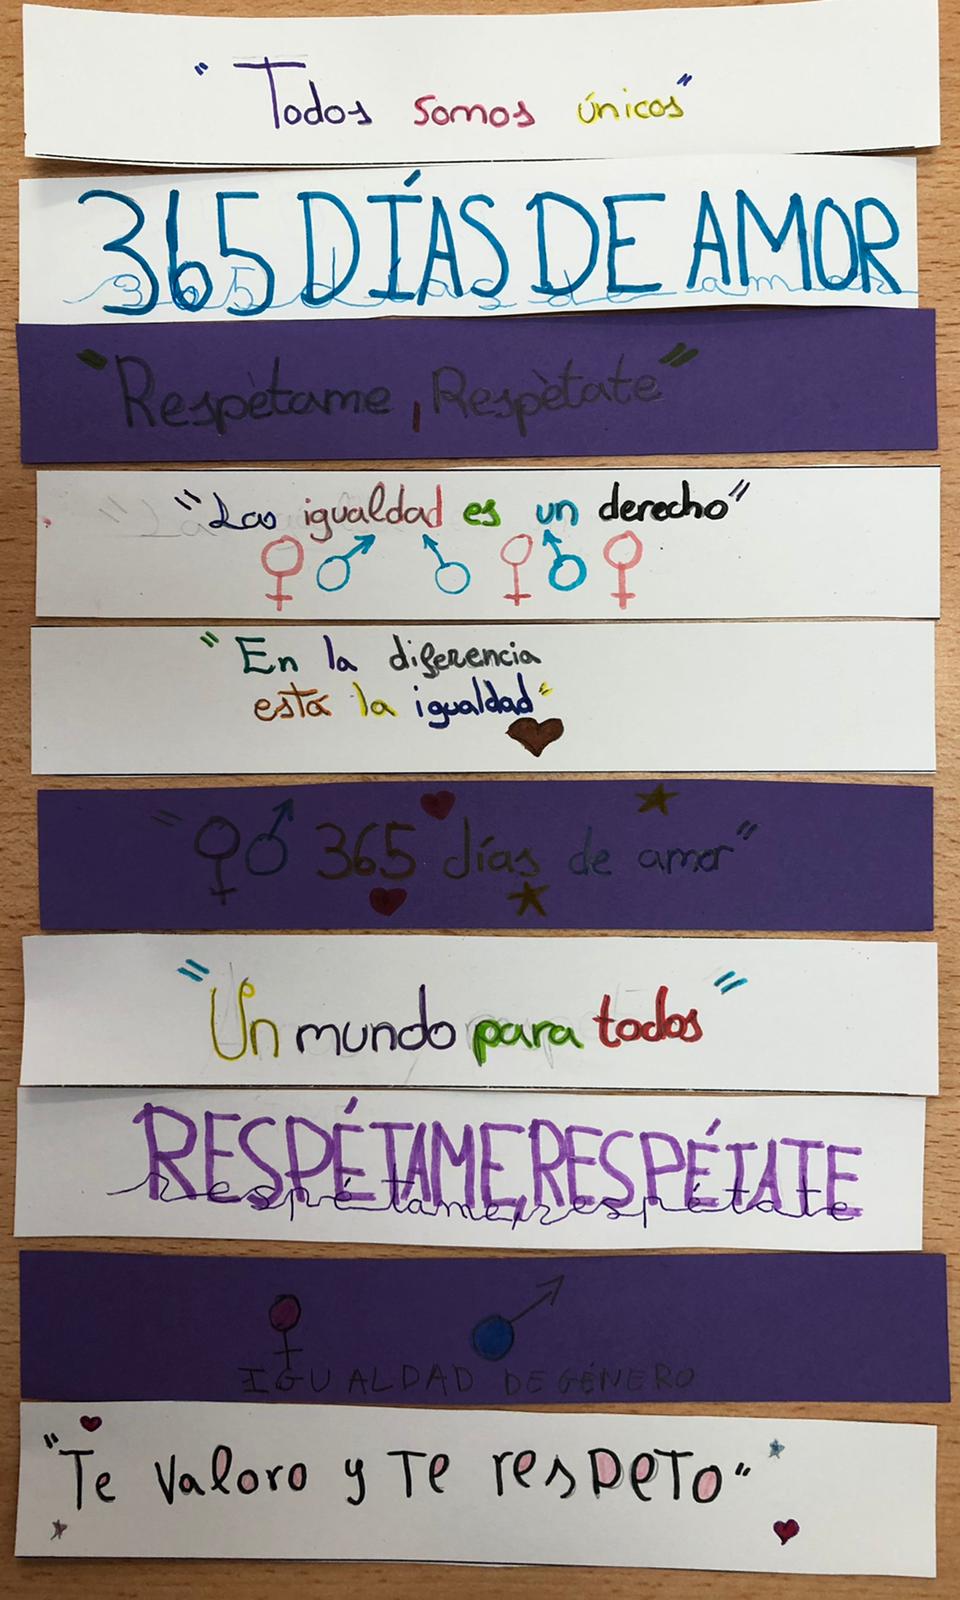 "Todos somos únicos"
365 DÍAS DE AMOR
365 días de amor
"Respètame, Respètate"
"Las igualdad es un derecho"
"En la diferencia
está la igualdad"
"365 días de amor"
"Un mundo para todos"
RESPÉTAME,RESPÉTATE
respétame,respétate
IGUALDAD DE GÉNERO
"Te valoro y Te respeTo"